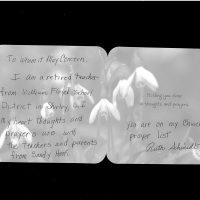 To Whom it May Concern,
I am a retired teacher
from William Floyd School
District in Shirley, N.Y.
My heart thoughts and
prayers are with
the teachers and parents
from Sandy Hook.
Holding you close
in thoughts and prayers.
you are on my Church
prayer list
Ruth